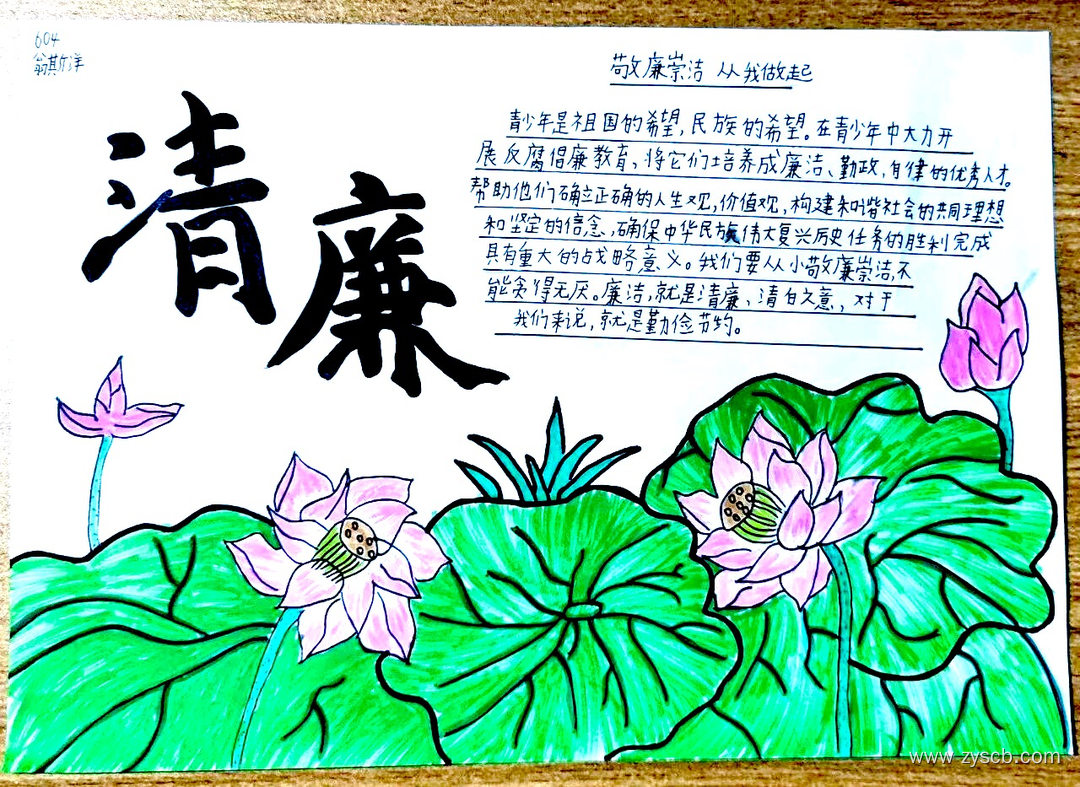 604
翁其洋
清廉
敬廉崇洁 从我做起
青少年是祖国的希望,民族的希望。在青少年中大力开
展反腐倡廉教育、将它们培养成廉洁、勤政,自律的优秀人才。
帮助他们确立正确的人生观,价值观,构建和谐社会的共同理想
和坚定的信念,确保中华民族伟大复兴历史任务的胜利完成
具有重大的战略意义。我们要从小敬廉崇洁,不
能贪得无厌。廉洁,就是清廉、清白之意,对于
我们来说,就是勤俭节约。
www.zyscb.com